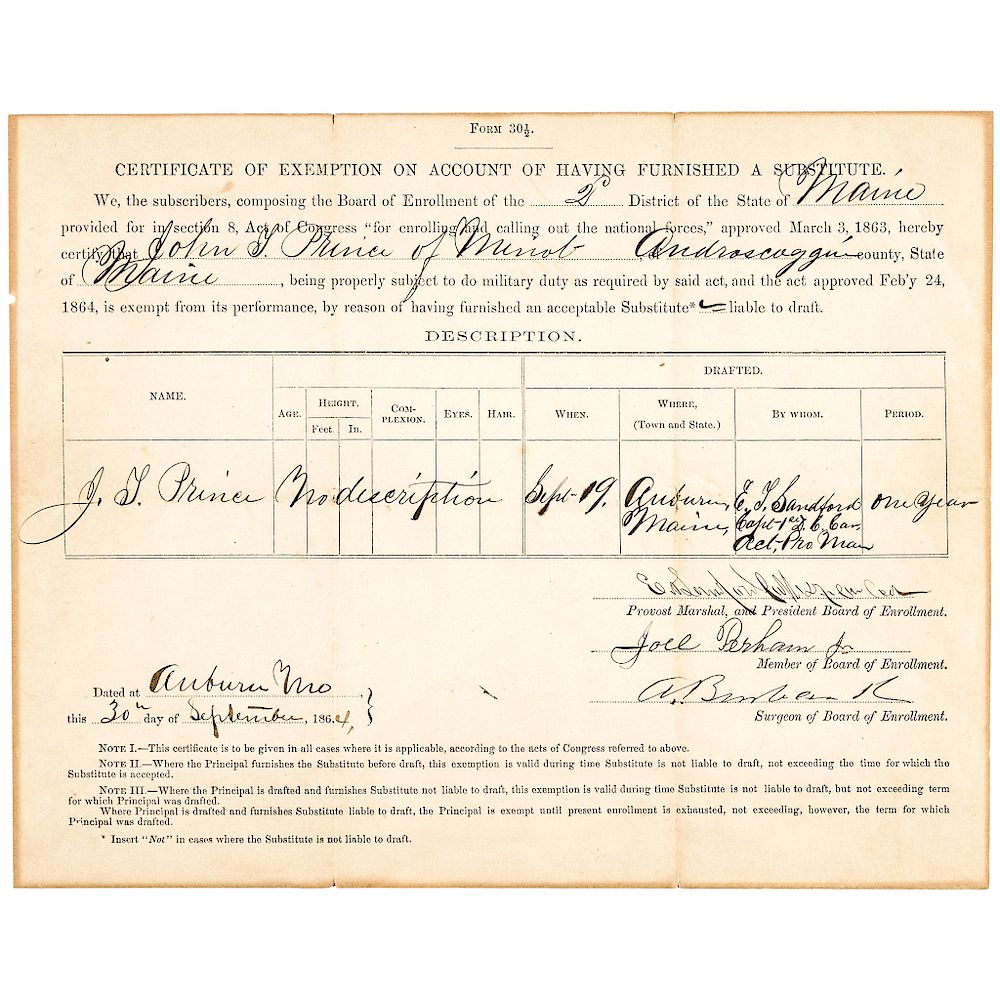 Form 30½.
CERTIFICATE OF EXEMPTION ON ACCOUNT OF HAVING FURNISHED A SUBSTITUTE.
We, the subscribers, composing the Board of Enrollment of the 2d District of the State of Maine
provided for in section 8, Act of Congress “for enrolling and calling out the national forces,” approved March 3, 1863, hereby
certify that John T. Prince of Minot Androscoggin county, State
of Maine, being properly subject to do military duty as required by said act, and the act approved Feb'y 24,
1864, is exempt from its performance, by reason of having furnished an acceptable Substitute* liable to draft.
DESCRIPTION.
NAME. AGE. HEIGHT. Feet. In. COMPLEXION. EYES. HAIR. DRAFTED. WHEN. WHERE, (Town and State.) BY WHOM. PERIOD.
J. T. Prince No description Sept 19, Auburn, E. T. Sandford one Year
Maine, Capt 1st D. C. Cav.
Act, Pro Mar
Provost Marshal, and President Board of Enrollment.
Joel Perham Jr
Member of Board of Enrollment.
Dated at Auburn Me
this 30th day of September, 1864,
Surgeon of Board of Enrollment.
NOTE I.—This certificate is to be given in all cases where it is applicable, according to the acts of Congress referred to above.
NOTE II.—Where the Principal furnishes the Substitute before draft, this exemption is valid during time Substitute is not liable to draft, not exceeding the time for which the
Substitute is accepted.
NOTE III.—Where the Principal is drafted and furnishes Substitute not liable to draft, this exemption is valid during time Substitute is not liable to draft, but not exceeding term
for which Principal was drafted.
Where Principal is drafted and furnishes Substitute liable to draft, the Principal is exempt until present enrollment is exhausted, not exceeding, however, the term for which
Principal was drafted.
* Insert “Not” in cases where the Substitute is not liable to draft.